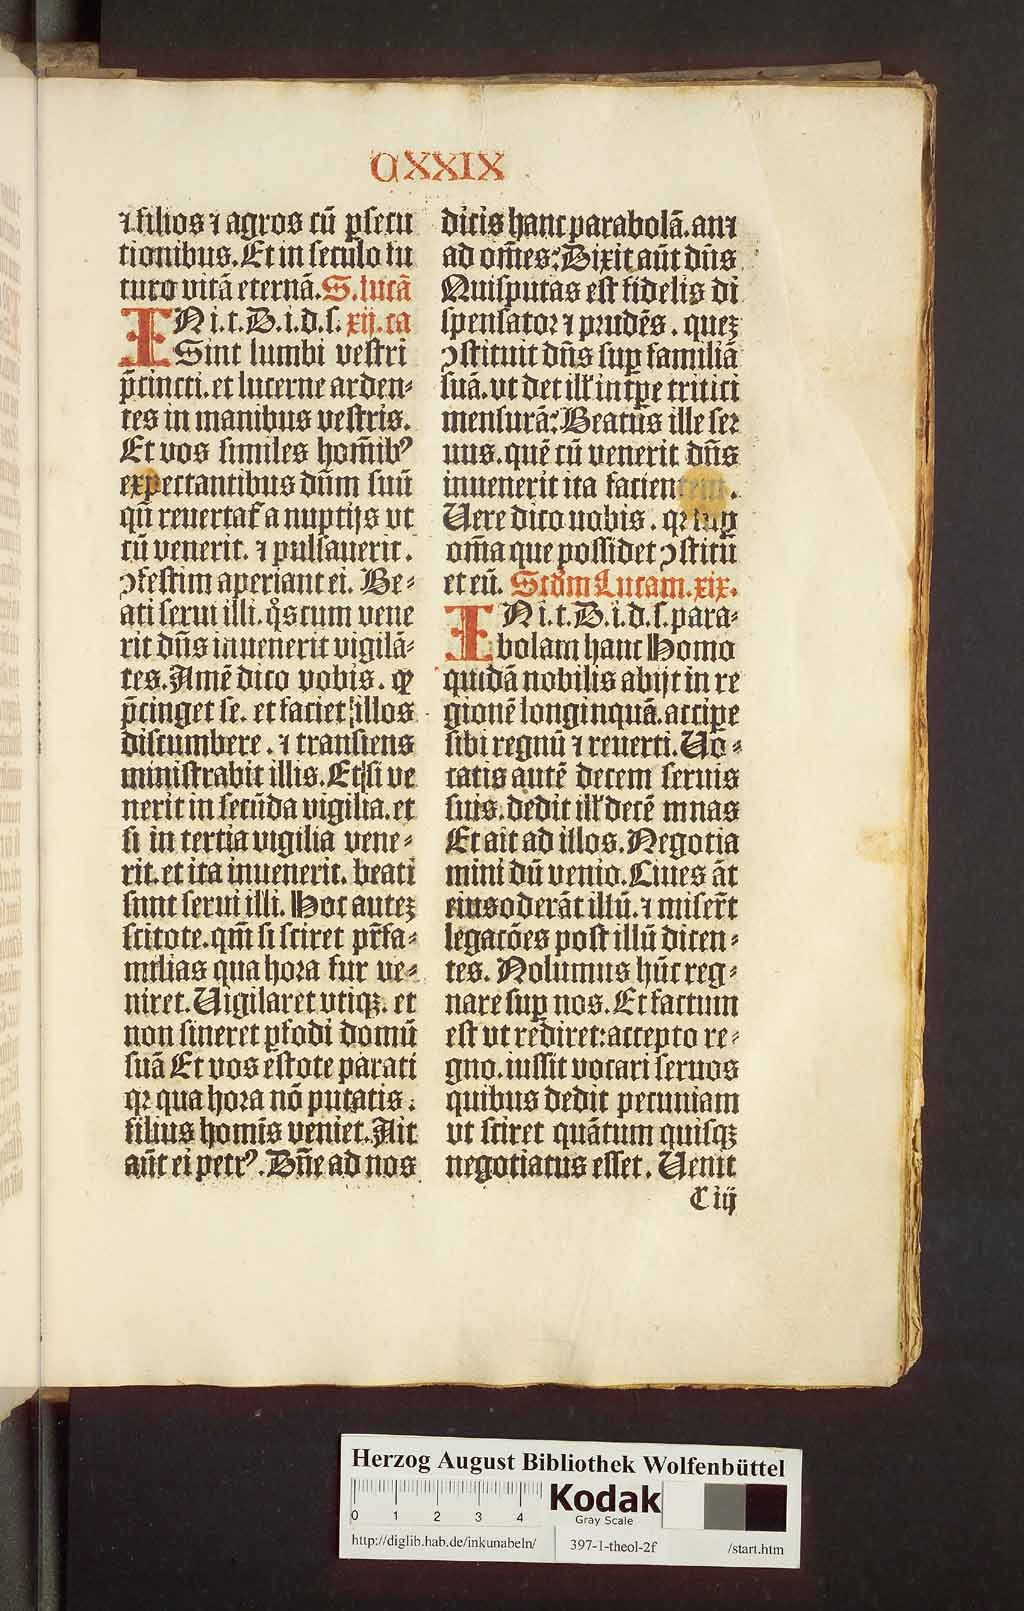 CXXIX
⁊ filios ⁊ agros cū ꝑsecu
tionibus. Et in seculo fu
turo vitā eternā. S. lucā
IN i. t. D. i. d. s. xij. ca
Sint lumbi vestri
p̄cincti. et lucerne arden-
tes in manibus vestris.
Et vos similes hom̄ibꝰ
expectantibus dūm suū
qn̄ reuertat̄ a nuptijs vt
cū venerit. ⁊ pulsauerit.
ↄfestim aperiant ei. Be-
ati serui illi. qͦs cum vene
rit dn̄s inuenerit vigilā-
tes. Amē dico vobis. ꝙ
p̄cinget se. et faciet illos
discumbere. ⁊ transiens
ministrabit illis. Et si ve
nerit in secūda vigilia. et
si in tertia vigilia vene-
rit. et ita inuenerit. beati
sunt serui illi. Hoc auteꝫ
scitote. qm̄ si sciret pr̄fa-
milias qua hora fur ve-
niret. Uigilaret vtiqꝫ. et
non sineret ꝑfodi domū
suā Et vos estote parati
qꝛ qua hora nō putatis.
filius homīs veniet. Ait
aūt ei petrꝰ. Dn̄e ad nos
dicis hanc parabolā. an ⁊
ad om̄es: Dixit aūt dn̄s
Quis putas est fidelis di
spensator ⁊ prudēs. queꝫ
ↄstituit dn̄s suꝑ familiā
suā. vt det ill' in tꝑe tritici
mensurā: Beatus ille ser
uus. quē cū venerit dn̄s
inuenerit ita facientem.
Uere dico uobis. qꝛ suꝑ
om̄a que possidet ↄstitū
et eū. Scd̄m Lucam. xix.
IN i. t. D. i. d. s. para-
bolam hanc Homo
quidā nobilis abijt in re
gionē longinquā. accipe
sibi regnū ⁊ reuerti. Uo-
catis autē decem seruis
suis. dedit ill' decē mnas
Et ait ad illos. Negotia
mini dū venio. Ciues āt
eius oderāt illū. ⁊ miser̄t
legacōes post illū dicen-
tes. Nolumus hūc reg-
nare suꝑ nos. Et factum
est vt rēdiret: accepto re-
gno. iussit vocari seruos
quibus dedit pecuniam
vt sciret quātum quisqꝫ
negotiatus esset. Uenit
C iij
Herzog August Bibliothek Wolfenbüttel
0 1 2 3 4
Kodak
Gray Scale
http://diglib.hab.de/inkunabeln/ 397-1-theol-2f /start.htm